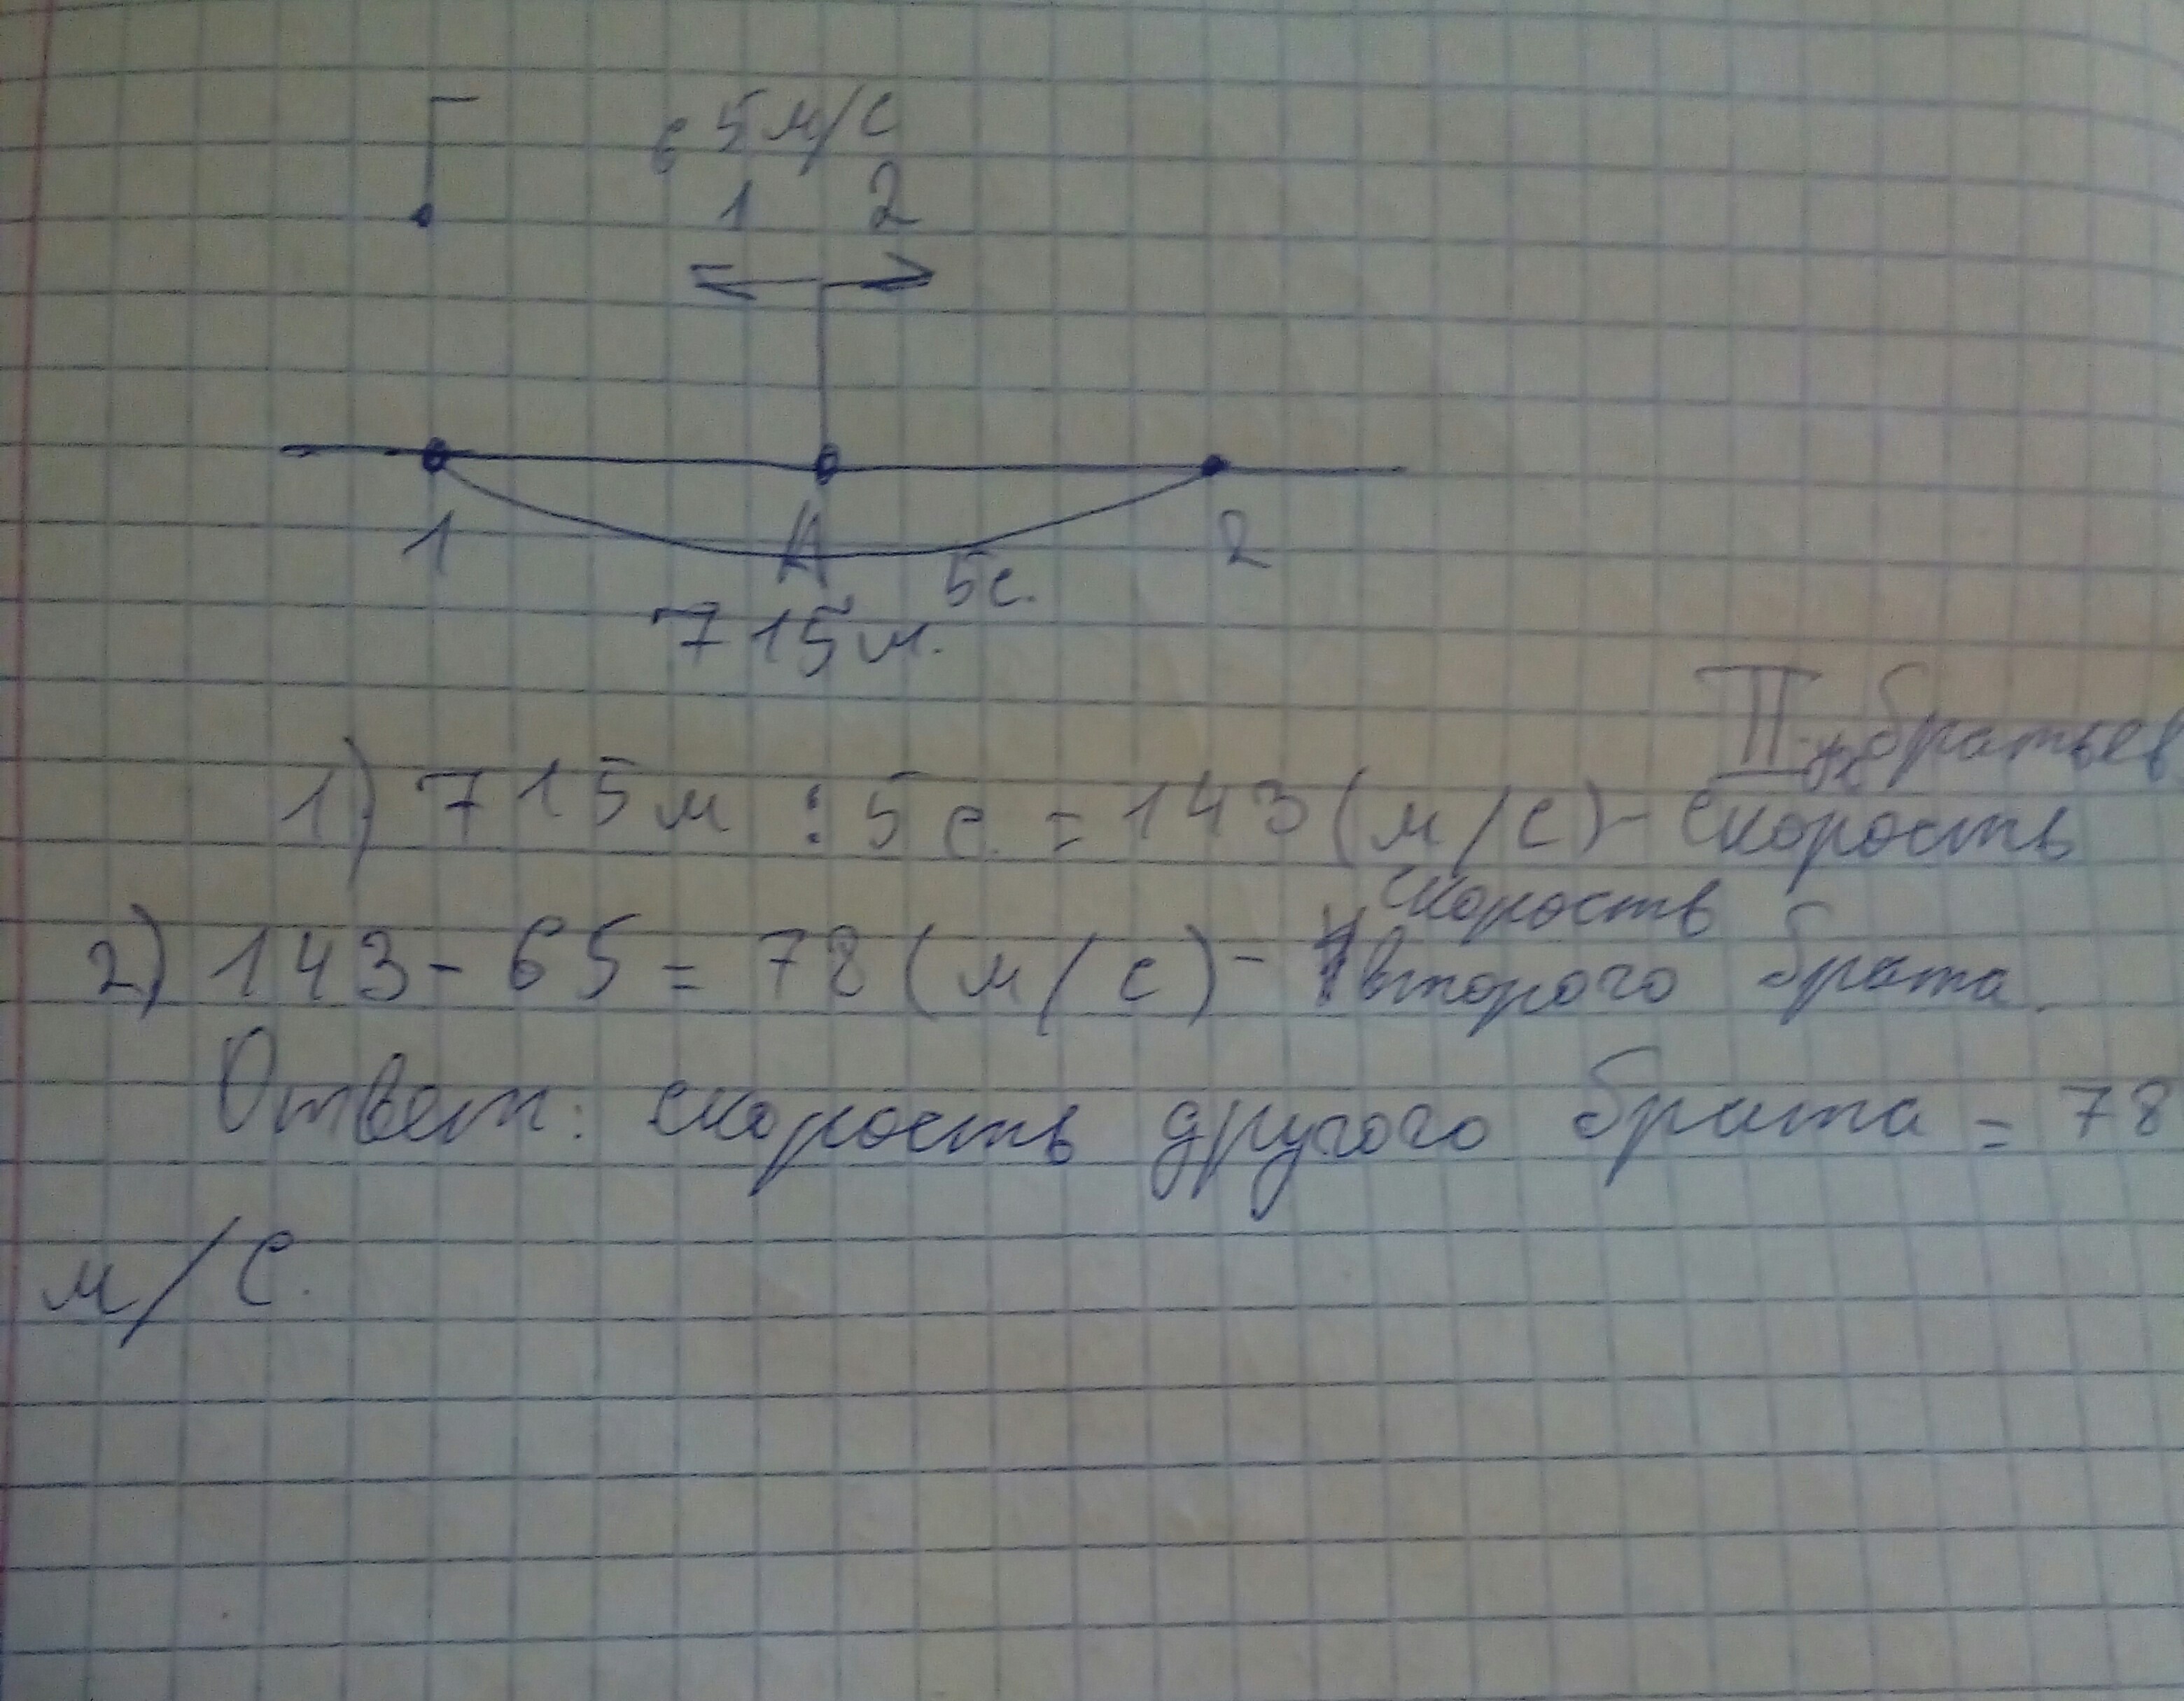 65м/с
1 2
1 А 2
5с.
715м.
II-х братьев
1) 715м : 5с. = 143(м/с)- скорость
скорость
2) 143-65=78(м/с)- второго брата.
Ответ: скорость другого брата = 78
м/с.